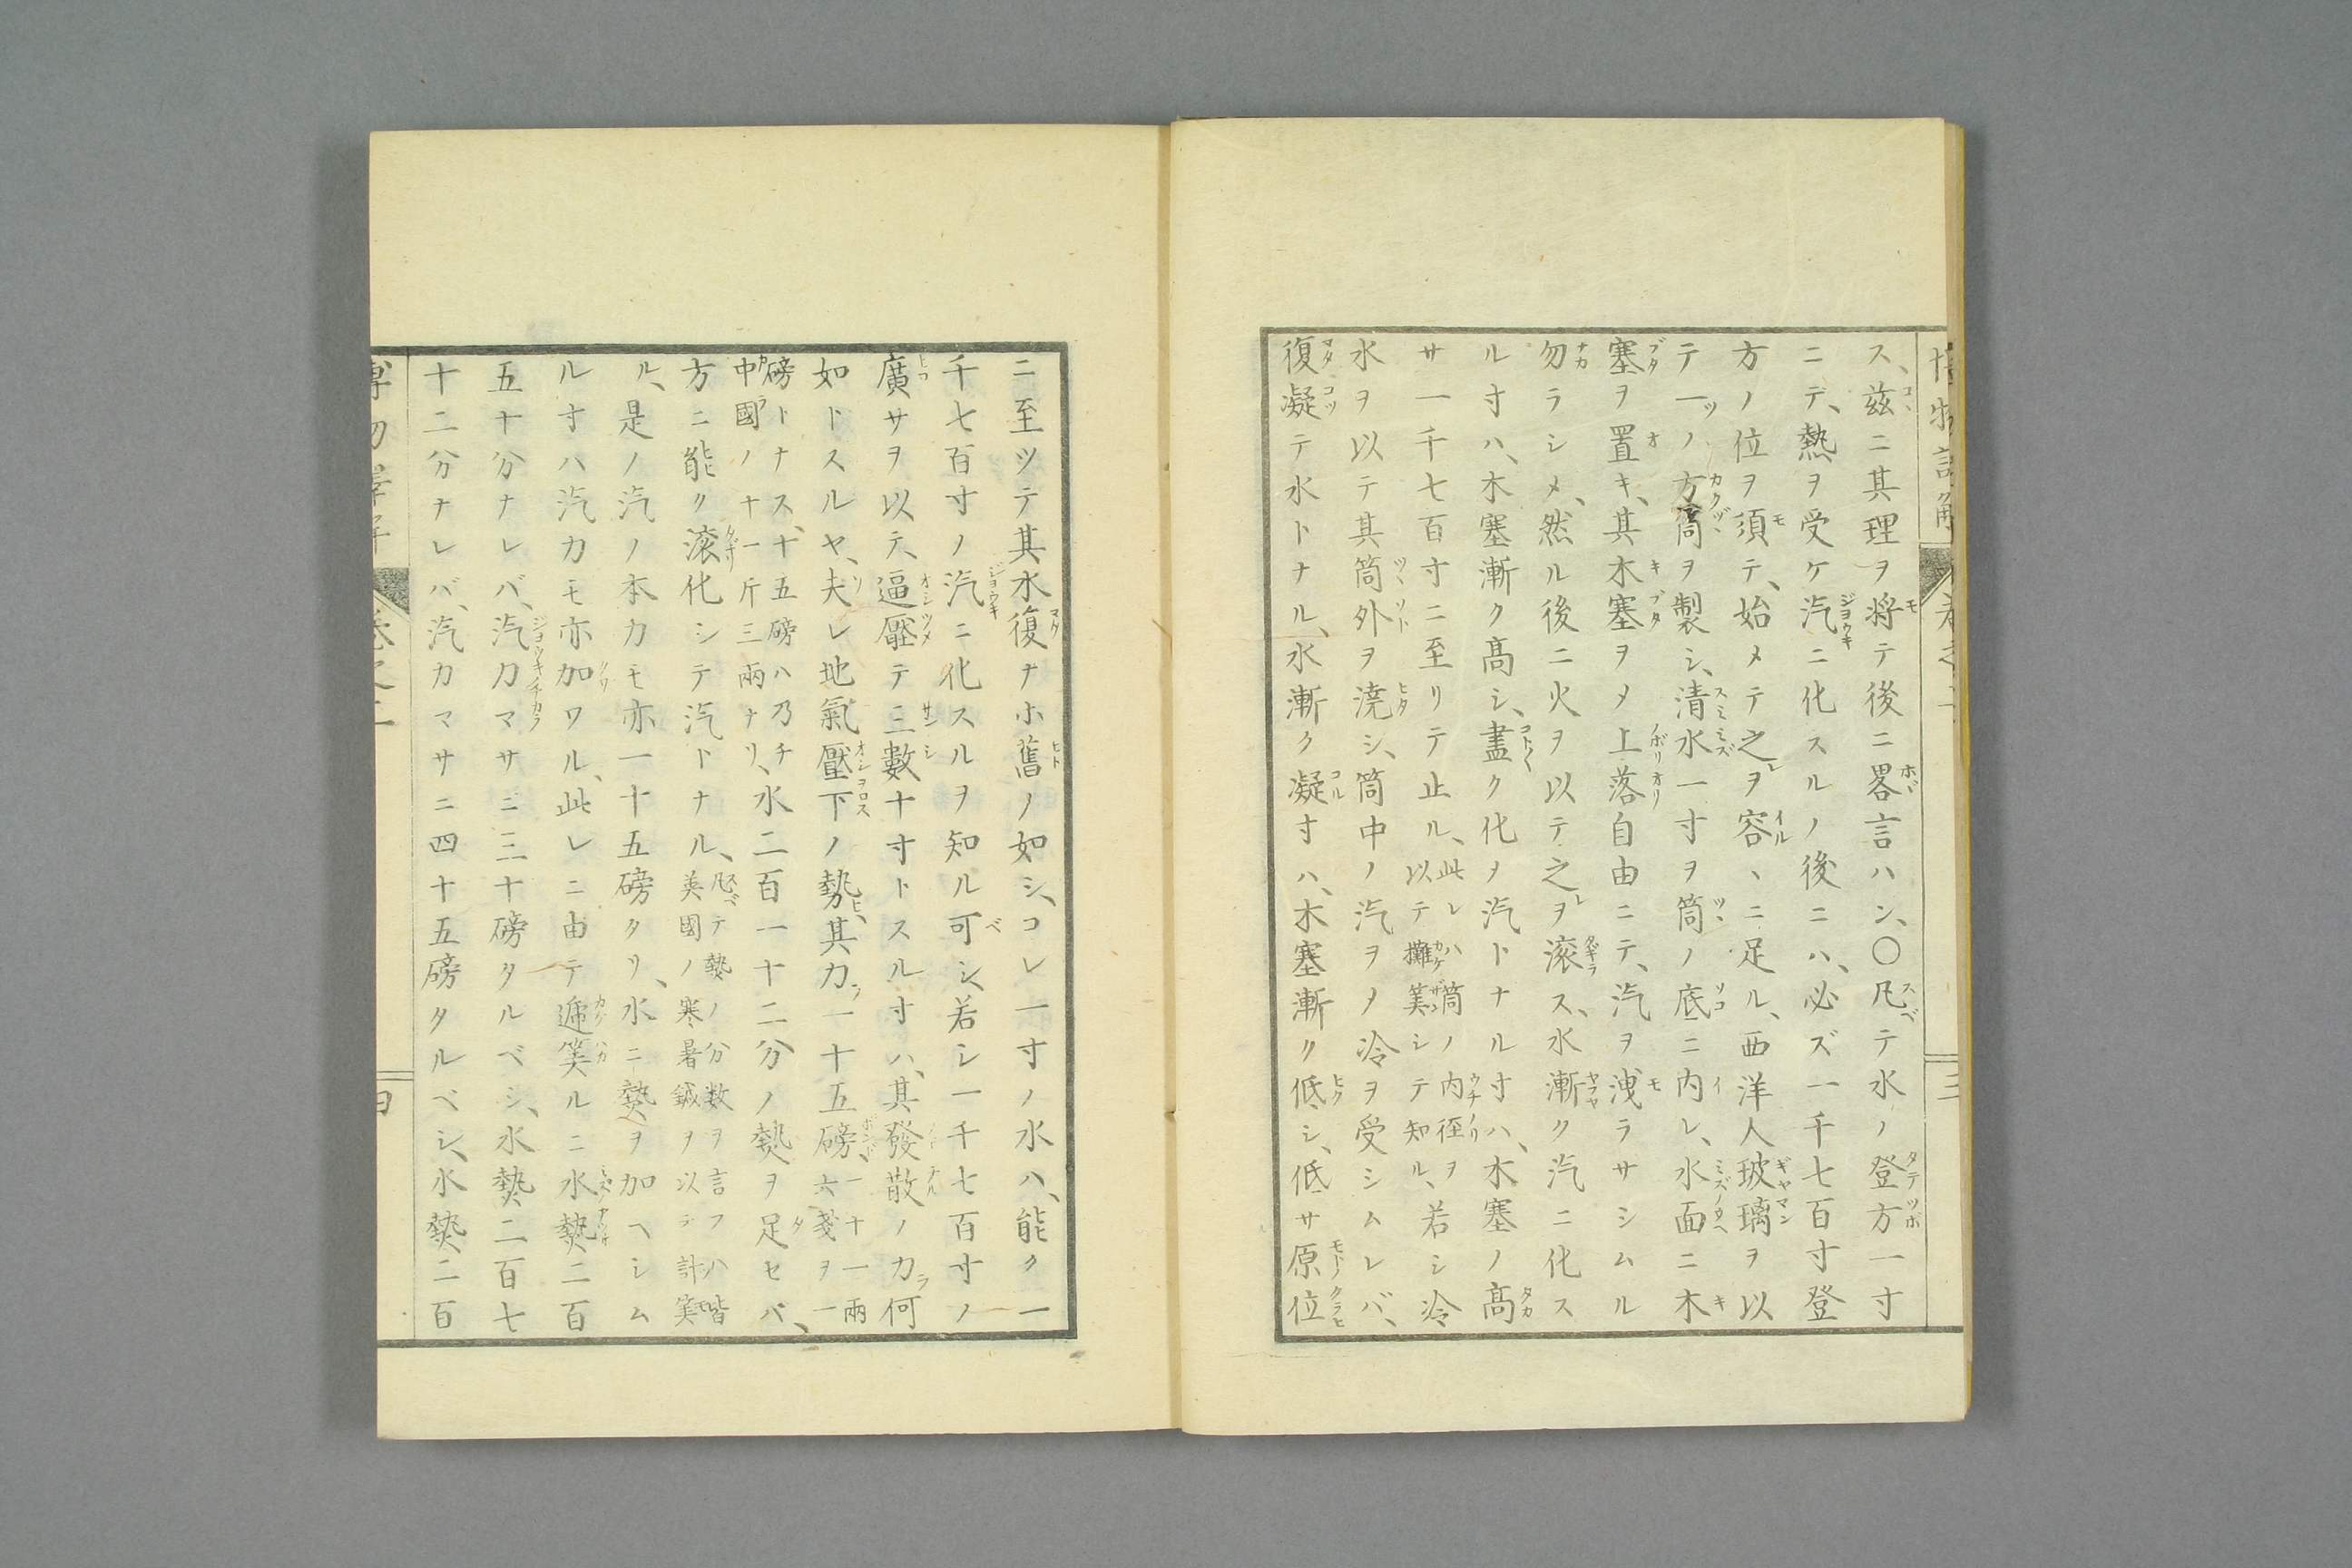 ス、茲ニ其理ヲ将テ後ニ畧言ハン、〇凡テ水ノ登方一寸
ニテ、熱ヲ受ケ汽ニ化スルノ後ニハ、必ズ一千七百寸登
方ノ位ヲ須テ、始メテ之ヲ容ヽニ足ル、西洋人玻璃ヲ以
テ一ツノ方筒ヲ製シ、清水一寸ヲ筒ノ底ニ内レ、水面ニ木
塞ヲ置キ、其木塞ヲメ上落自由ニテ、汽ヲ洩ラサシムル
勿ラシメ、然ル後ニ火ヲ以テ之ヲ滚ス、水漸ク汽ニ化ス
ル寸ハ、木塞漸ク髙シ、盡ク化メ汽トナル寸ハ、木塞ノ髙
サ一千七百寸ニ至リテ止ル、此レハ筒ノ内径ヲ以テ攤筭シテ知ル、若シ冷
水ヲ以テ其筒外ヲ澆シ、筒中ノ汽ヲメ冷ヲ受シムレバ、
復凝テ水トナル、水漸ク凝寸ハ、木塞漸ク低シ、低サ原位
ニ至ツテ其水復ナホ舊ノ如シ、コレ一寸ノ水ハ、能ク一
千七百寸ノ汽ニ化スルヲ知ル可シ、若シ一千七百寸ノ
廣サヲ以テ、逼壓テ三數十寸トスル寸ハ、其發散ノ力何
如トスルヤ、夫レ地氣壓下ノ勢、其力一十五磅、一十一両六戔ヲ一
磅トナス、十五磅ハ乃チ中國ノ十一斤三兩ナリ、水二百一十二分ノ熱ヲ足セバ、
方ニ能ク滚化シテ汽トナル、凡テ熱ノ分数ヲ言フハ皆英國ノ寒暑鍼ヲ以テ計筭
ル、是ノ汽ノ本力モ亦一十五磅タリ、水ニ熱ヲ加ヘシム
ル寸ハ汽力モ亦加ワル、此レニ由テ逓筭ルニ水熱二百
五十分ナレバ、汽力マサニ三十磅タルベシ、水熱二百七
十二分ナレバ、汽力マサニ四十五磅タルベシ、水熱二百